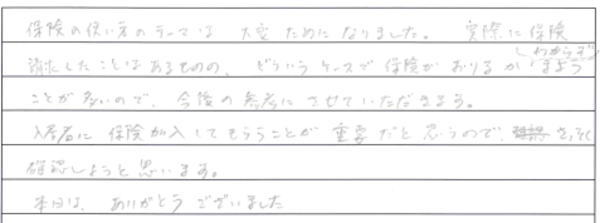 保険の使い方のテーマは 大変 ためになりました。 実際に 保険
請求したことはあるものの、どういうケースで 保険が おりるか わからず 迷う
ことが多いので、今後の参考に させていただきます。
入居者に 保険加入してもらうことが 重要 だと 思うので、さっそく
確認しようと思います。
本日は、ありがとうございました